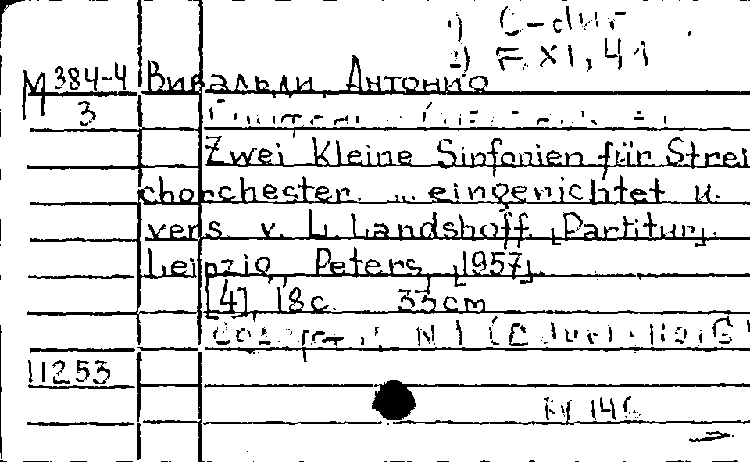 1) C-dur
2) F. XI, 41
М 384-4 Вивальди, Антонио
3
Zwei Kleine Sinfonien für Strei
chorchester ... eingerichtet u.
vers. v. L. Landshoff. [Partitur].
Leipzig, Peters, [1957].
[4], 18 с. 33 cm
N 1
11253
RV 146